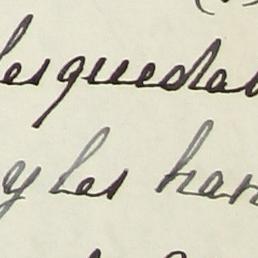 les quedab
y les han